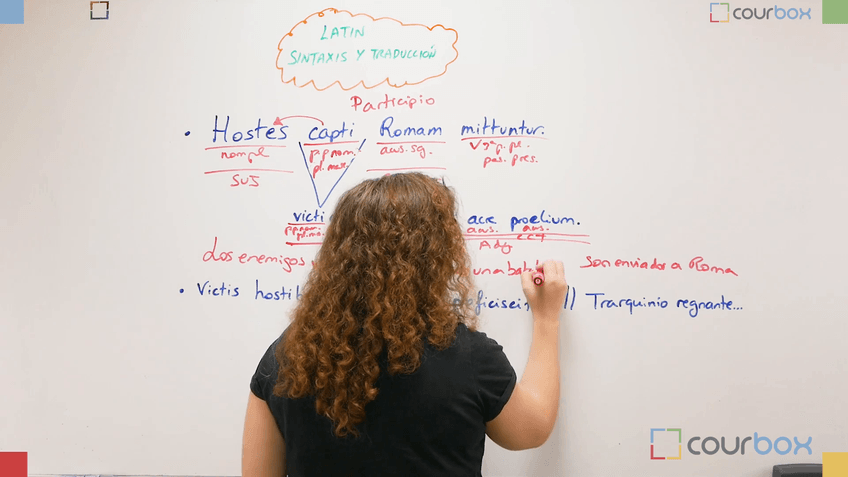 courbox
LATIN
SINTAXIS Y TRADUCCIÓN
Participio
• Hostes capti Romam mittuntur.
nom pl p.p nom. acus. sg. V 3ª p. pl.
pl. masc. pas. pres.
SUJ
victi acre proelium.
p.p nom. acus. acus.
Adj
Los enemigos una bata son enviados a Roma
• Victis hostib // Trarquinio regnante...
courbox